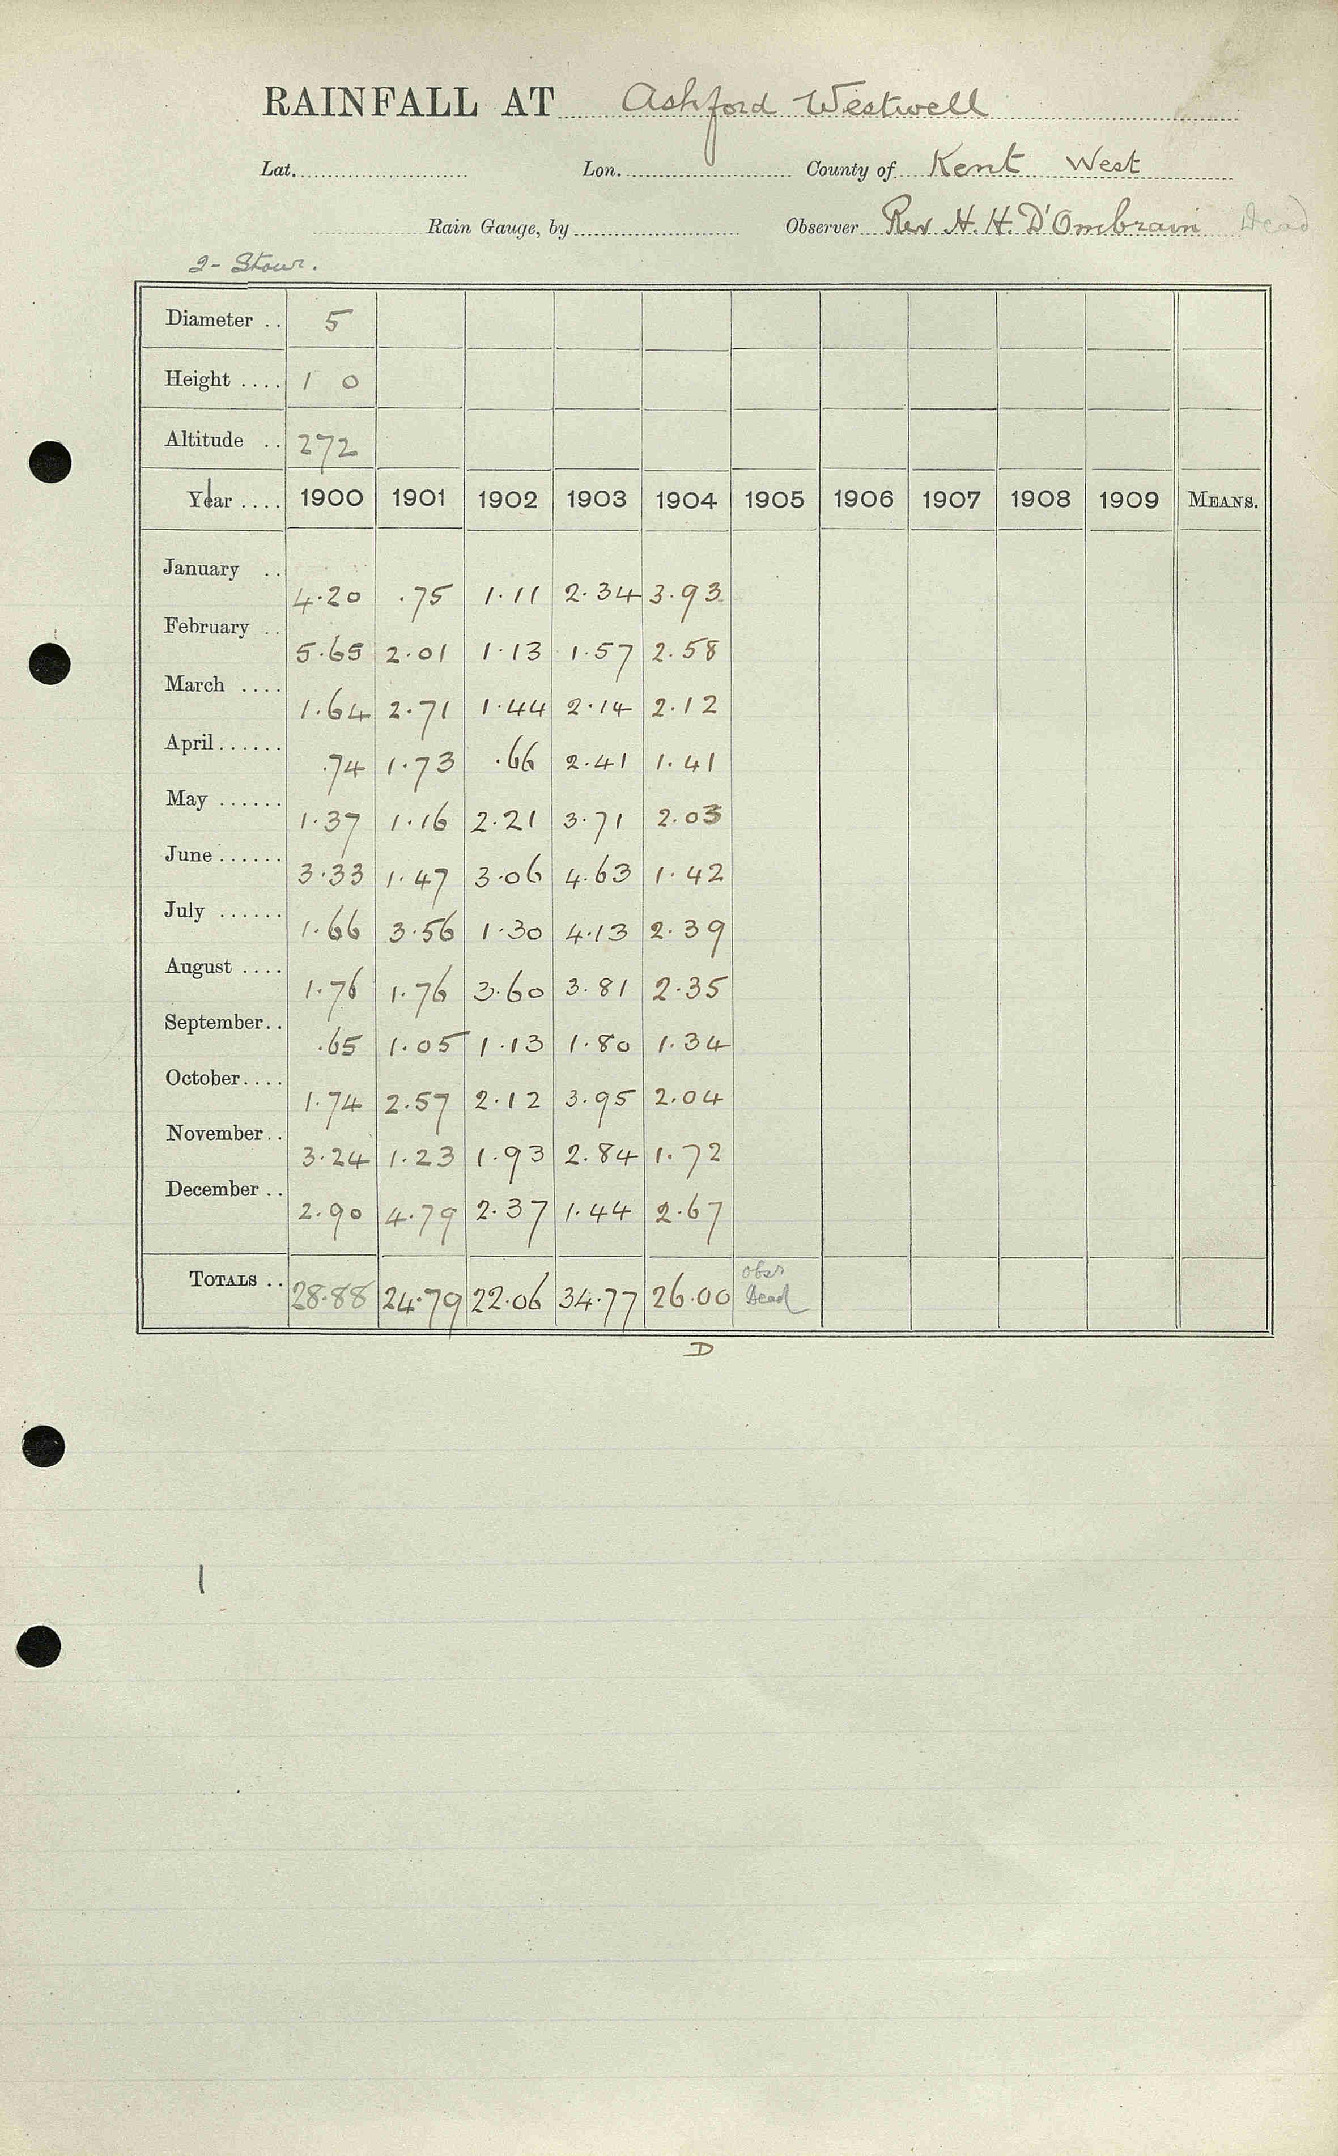 RAINFALL AT Ashford Westwell
Lat. Lon. County of Kent West
Rain Gauge, by Observer Rev H. H. D'Ombrain Dead
2 - Stour.
Diameter .. 5
Height .... 1 0
Altitude .. 272
Year .... 1900 1901 1902 1903 1904 1905 1906 1907 1908 1909 MEANS.
January .. 4.20 .75 1.11 2.34 3.93
February .. 5.65 2.01 1.13 1.57 2.58
March .... 1.64 2.71 1.44 2.14 2.12
April...... .74 1.73 .66 2.41 1.41
May ...... 1.37 1.16 2.21 3.71 2.03
June ...... 3.33 1.47 3.06 4.63 1.42
July ...... 1.66 3.56 1.30 4.13 2.39
August .... 1.76 1.76 3.60 3.81 2.35
September.. .65 1.05 1.13 1.80 1.34
October.... 1.74 2.57 2.12 3.95 2.04
November.. 3.24 1.23 1.93 2.84 1.72
December .. 2.90 4.79 2.37 1.44 2.67
TOTALS .. 28.88 24.79 22.06 34.77 26.00 obsr Dead
D